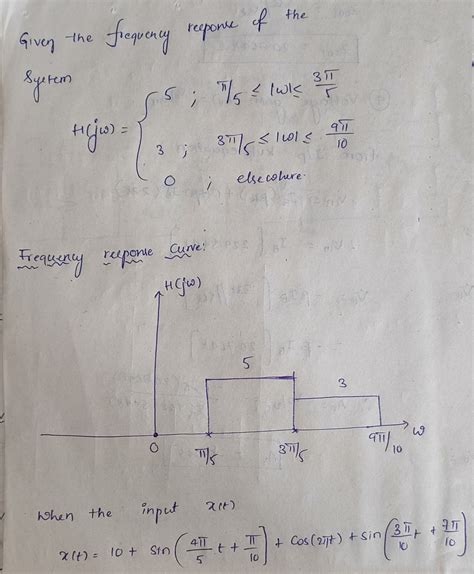 Given the frequency response of the
System
H(jω) = { 5 ; π/5 ≤ |ω| ≤ 3π/5
3 ; 3π/5 ≤ |ω| ≤ 9π/10
0 ; elsewhere.
Frequency response Curve:
H(jω)
5
3
0 π/5 3π/5 9π/10 ω
When the input x(t)
x(t) = 10 + sin(4π/5 t + π/10) + cos(2πt) + sin(3π/10 t + 7π/10)